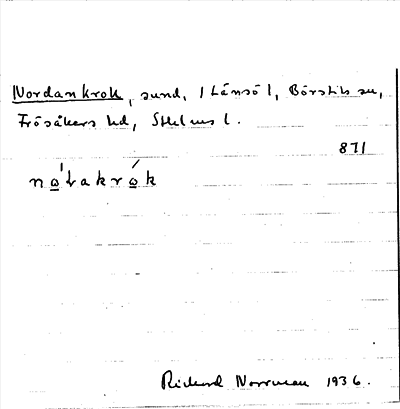 Nordankrok, sund, (Länsö), Börstils sn,
Frösåkers hd, Sthlms l.
871
no̲ɫakro̲k
Rickard Norrman 1936.